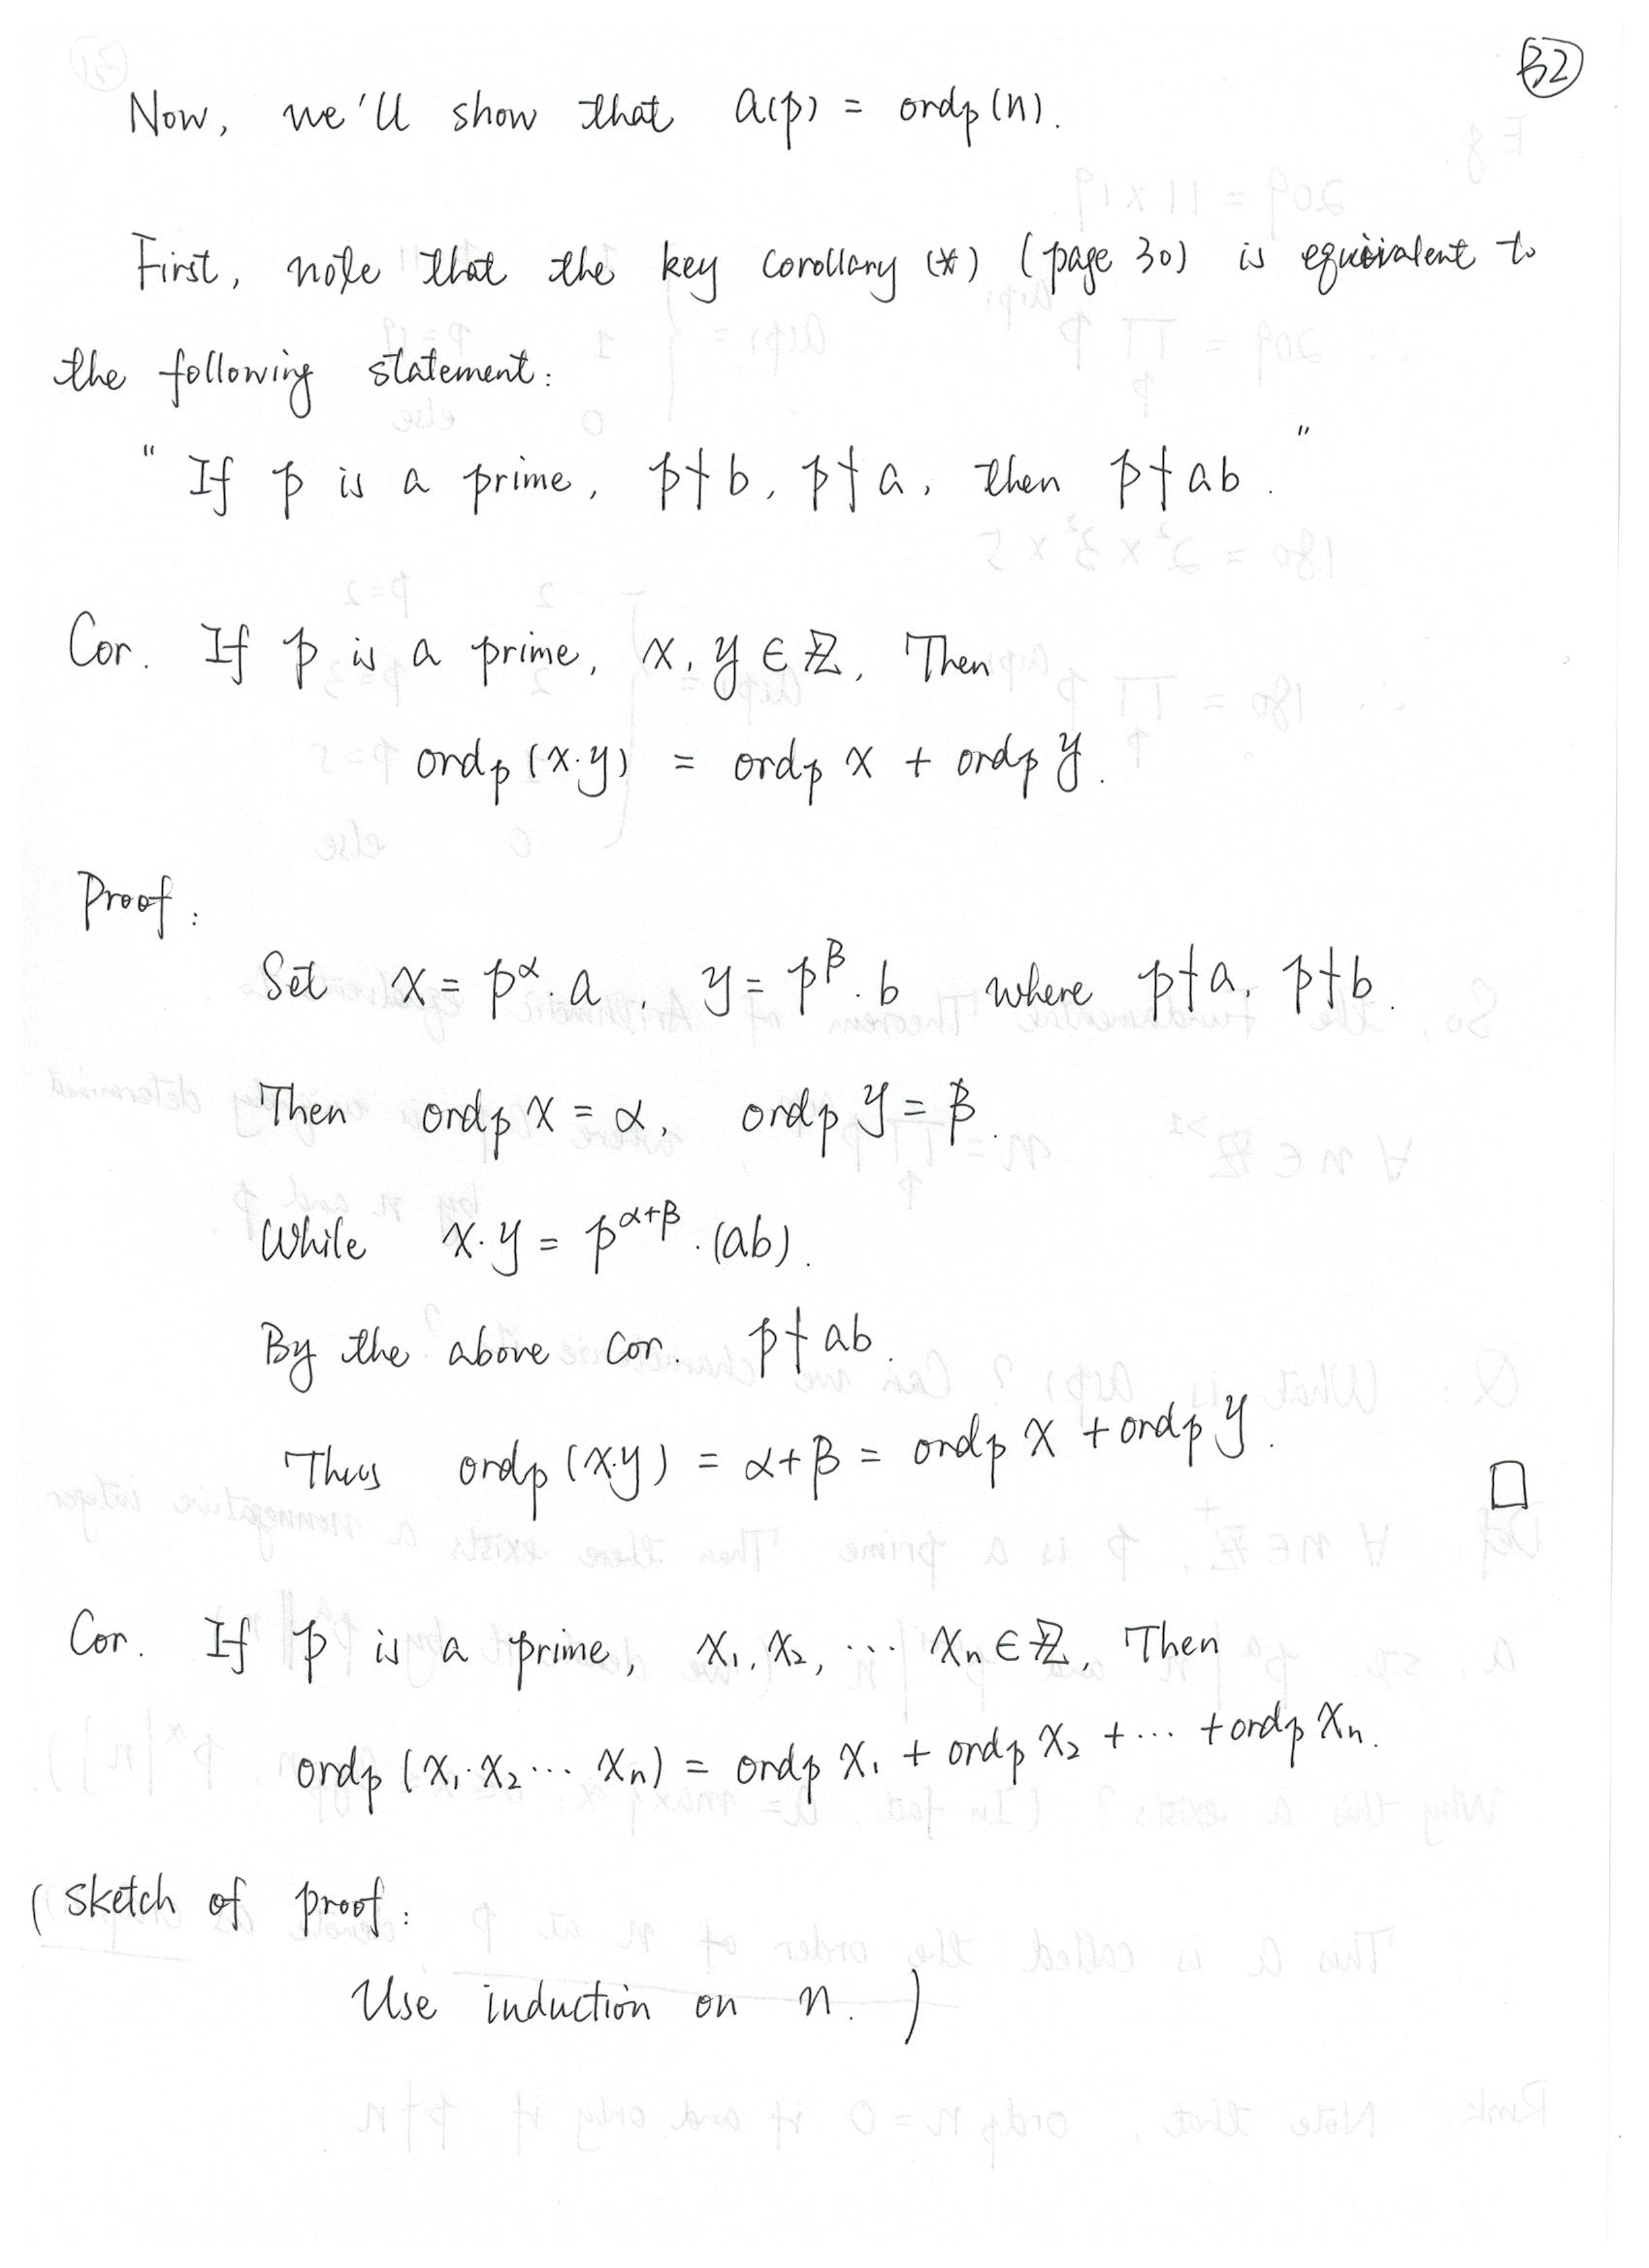 32
Now, we'll show that a(p) = ordp(n).
First, note that the key corollary (*) (page 30) is equivalent to
the following statement:
" If p is a prime, p∤b, p∤a, then p∤ab. "
Cor. If p is a prime, x, y ∈ ℤ, Then
ordp (x·y) = ordp x + ordp y.
Proof:
Set x = p^α · a, y = p^β · b where p∤a, p∤b.
Then ordp x = α, ordp y = β.
While x·y = p^(α+β) · (ab).
By the above cor. p∤ab.
Thus ordp (x·y) = α+β = ordp x + ordp y. □
Cor. If p is a prime, x₁, x₂, ⋯ xn ∈ ℤ, Then
ordp (x₁·x₂⋯ xn) = ordp x₁ + ordp x₂ +⋯ + ordp xn.
(sketch of proof:
Use induction on n. )